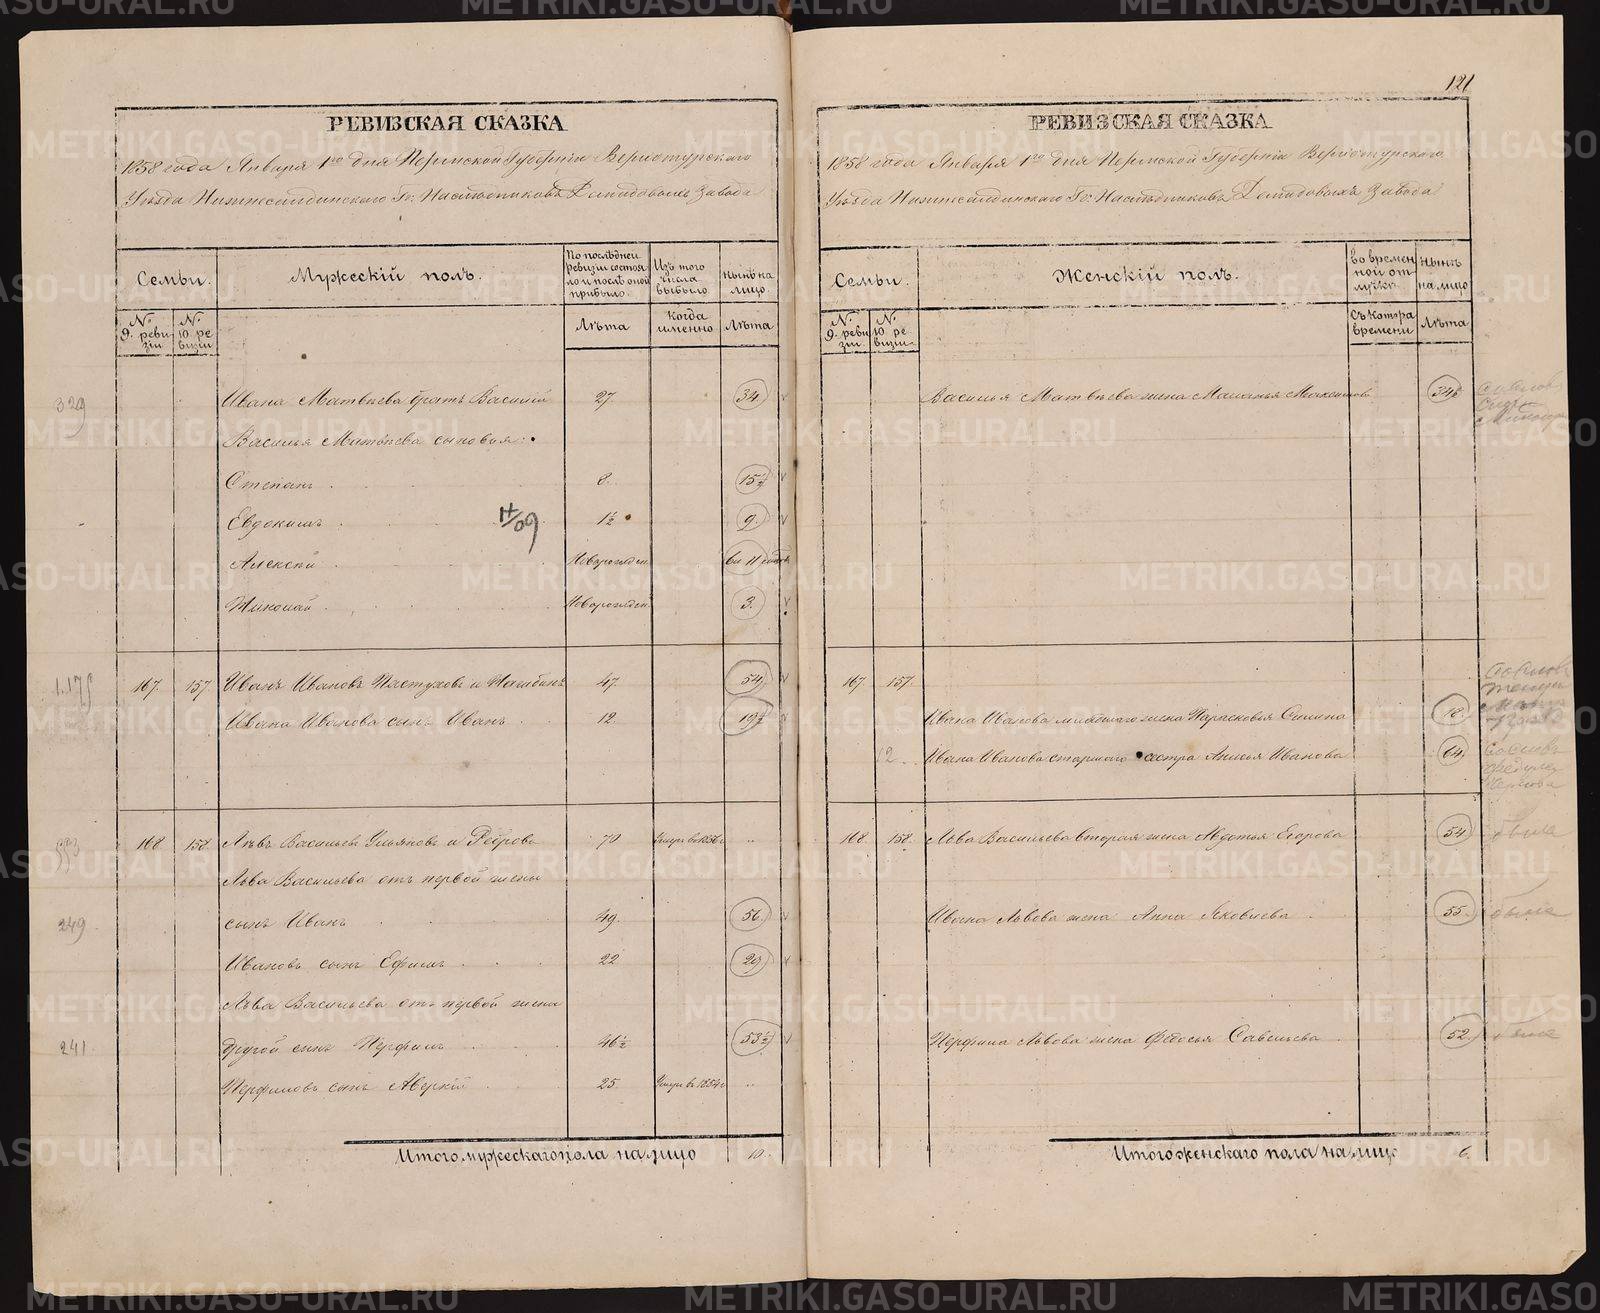 РЕВИЗСКАЯ СКАЗКА
1858 года Января 1го дня Пермской Губерніи Верхотурскаго
Уѣзда Нижнесалдинскаго Гг: Наслѣдниковъ Демидовыхъ Завода
Семьи.
Мужескій полъ.
По послѣдней ревизіи состояло и послѣ оной прибыло.
Изъ того числа выбыло.
Нынѣ на лицо.
№ 9. ревизіи
№ 10 ревизіи
Лѣта
Когда именно
Лѣта
329
Ивана Матвѣева братъ Василій 27. 34.
Василья Матвѣева сыновья:
Степанъ 8. 15½
Евдокимъ 1½ 9.
Алексѣй Новорожден
Николай Новорожден 3.
167. 157. Иванъ Ивановъ Пастуховъ и 47. 54.
Ивана Иванова сынъ Иванъ 12. 19½
168 158 Левъ Васильевъ Ульяновъ и Ребровъ 70 Умеръ въ 1856г
Льва Васильева отъ первой жены
249
сынъ Иванъ 49. 56.
Ивановъ сынъ Ефимъ 22 29
Льва Васильева отъ первой жены
241
другой сынъ Перфилъ 46½ 53½
Перфиловъ сынъ Аверкій 25. Умеръ въ 1854г
Итого мужескаго пола на лицо 10.
121
РЕВИЗСКАЯ СКАЗКА
1858 года Января 1го дня Пермской Губерніи Верхотурскаго
Уѣзда Нижнесалдинскаго Гг: Наслѣдниковъ Демидовыхъ Завода
Семьи.
Женскій полъ.
Во временной отлучкѣ
Нынѣ на лицо
№ 9. ревизіи
№ 10 ревизіи
Съ котора времени
Лѣта
Василья Матвѣева жена Маланья Максимова 34
167. 157.
Ивана Иванова младшаго жена Парасковья 18.
Ивана Иванова старшаго сестра Анисья Иванова 64.
168. 158. Льва Васильева вторая жена Авдотья Егорова 54
Ивана Львова жена Анна Яковлева 55.
Перфила Львова жена Федосья Савельева 52.
Итого женскаго пола на лицо 6.
METRIKI.GASO-URAL.RU